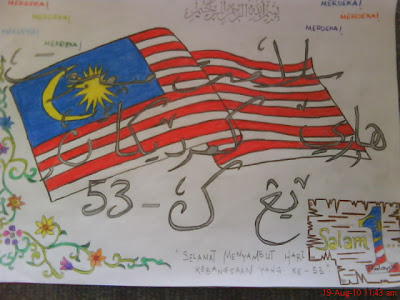 MERDEKA!
MERDEKA!
MERDEKA!
MERDEKA!
بسم الله الرحمن الرحيم
MERDEKA!
MERDEKA!
MERDEKA!
سلامت
هاري كمرديكاءن
يڠ ک-53
"SELAMAT MENYAMBUT HARI
KEBANGSAAN YANG KE-53"
Salam 1
Malaysia
19-Aug-10 11:43 am